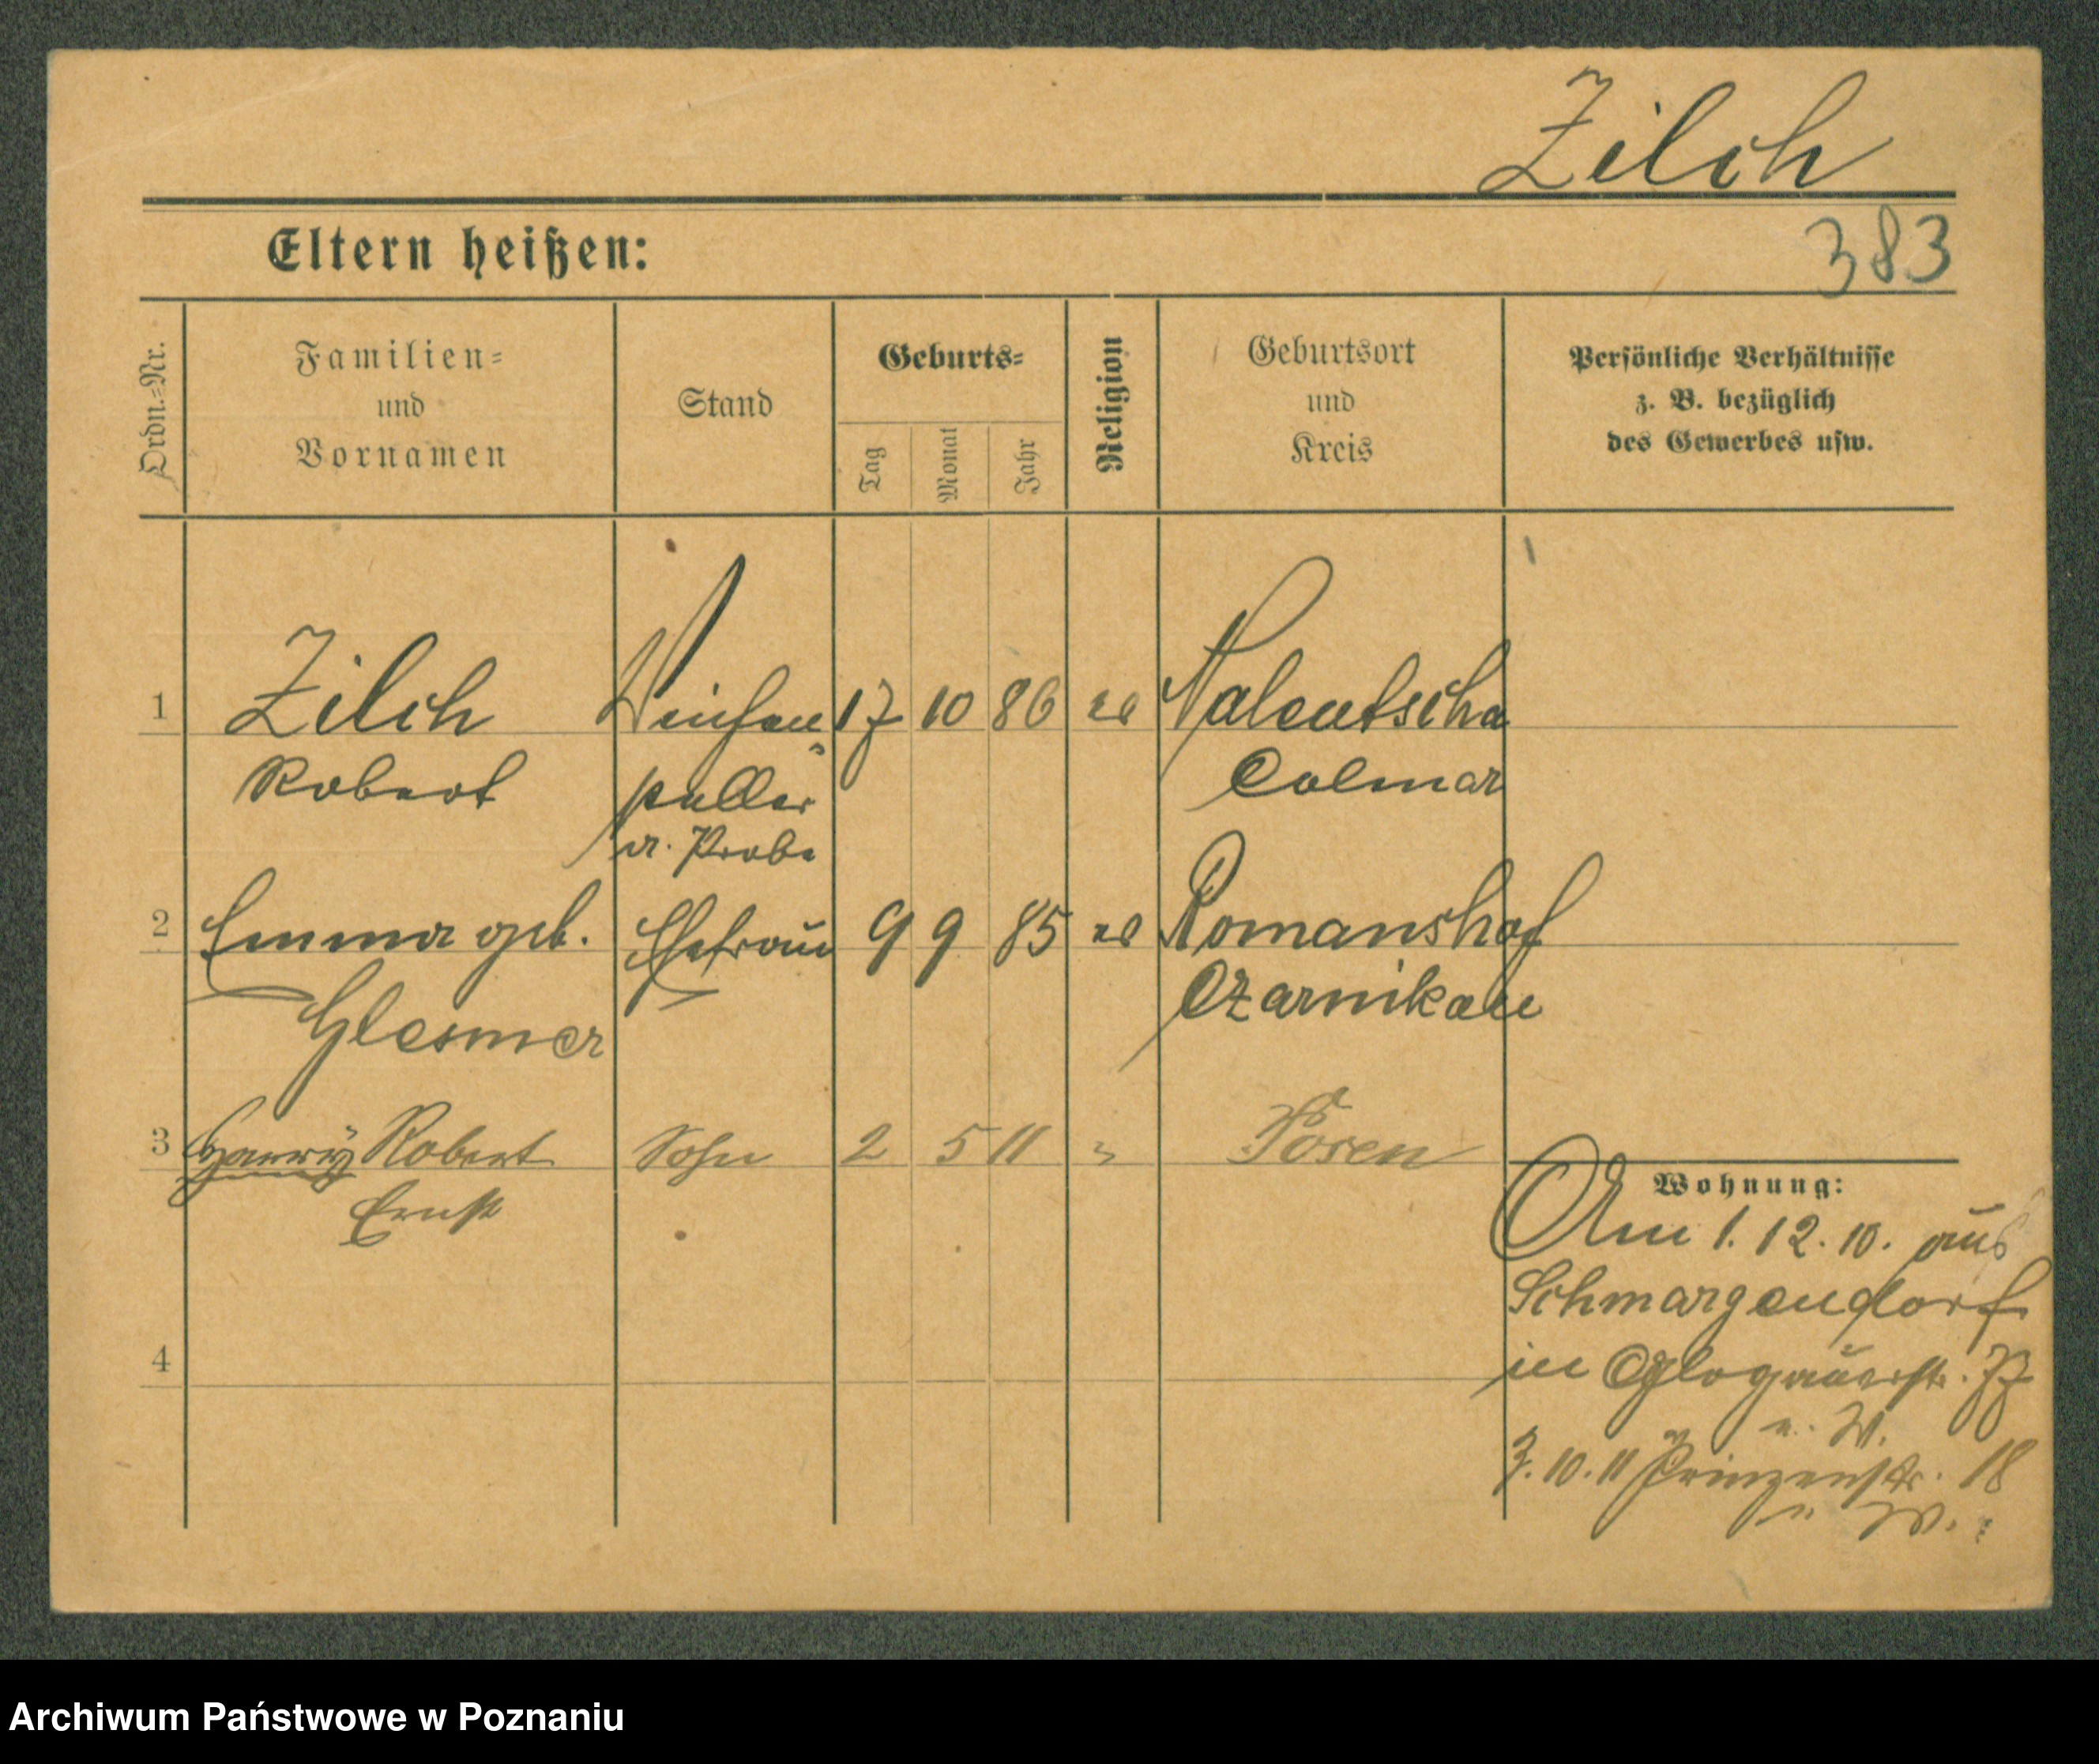 Zilch
Eltern heißen:
383
Ordn.-Nr.
Familien-
und
Vornamen
Stand
Geburts-
Tag
Monat
Jahr
Religion
Geburtsort
und
Kreis
Persönliche Verhältnisse
z. B. bezüglich
des Gewerbes usw.
1
Zilch
Robert
Weichen
steller
a. Probe
17
10
86
ev
Nalentscha
Colmar
2
Emma geb.
Glesmer
Ehefrau
9
9
85
ev
Romanshof
Czarnikau
3
Harry Robert
Ernst
Sohn
2
5
11
"
Posen
4
Wohnung:
Am 1. 12. 10. aus
Schmargendorf
in Glogauerstr. 77
u. W.
3. 10. 11 Prinzenstr. 18
u W.
Archiwum Państwowe w Poznaniu